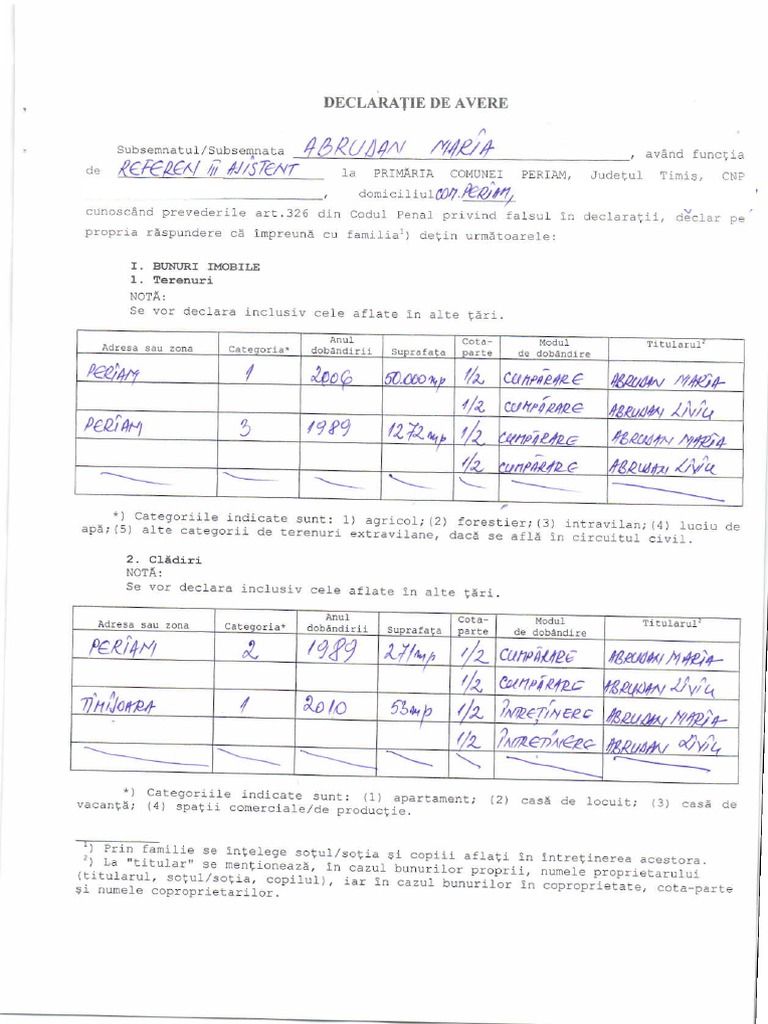 DECLARAȚIE DE AVERE
Subsemnatul/Subsemnata ABRUDAN MARÎA, având funcția
de REFEREN III ASISTENT la PRIMĂRIA COMUNEI PERIAM, Județul Timiș, CNP
, domiciliul COM. PERÎAM,
cunoscând prevederile art.326 din Codul Penal privind falsul în declarații, declar pe
propria răspundere că împreună cu familia1) dețin următoarele:
I. BUNURI IMOBILE
1. Terenuri
NOTĂ:
Se vor declara inclusiv cele aflate în alte țări.
Adresa sau zona Categoria* Anul dobândirii Suprafața Cota-parte Modul de dobândire Titularul2
PERÎAM 1 2006 50.000mp 1/2 CUMPĂRARE ABRUDAN MARÎA
1/2 CUMPĂRARE ABRUDAN LÎVÎU
PERÎAM 3 1989 1272mp 1/2 CUMPĂRARE ABRUDAN MARÎA
1/2 CUMPĂRARE ABRUDAN LÎVÎU
*) Categoriile indicate sunt: 1) agricol;(2) forestier;(3) intravilan;(4) luciu de
apă;(5) alte categorii de terenuri extravilane, dacă se află în circuitul civil.
2. Clădiri
NOTĂ:
Se vor declara inclusiv cele aflate în alte țări.
Adresa sau zona Categoria* Anul dobândirii Suprafața Cota-parte Modul de dobândire Titularul2
PERÎAM 2 1989 271mp 1/2 CUMPĂRARE ABRUDAN MARÎA
1/2 CUMPĂRARE ABRUDAN LÎVÎU
TÎMÎȘOARA 1 2010 53mp 1/2 ÎNTREȚINERE ABRUDAN MARÎA
1/2 ÎNTREȚINERE ABRUDAN LÎVÎU
*) Categoriile indicate sunt: (1) apartament; (2) casă de locuit; (3) casă de
vacanță; (4) spații comerciale/de producție.
1) Prin familie se înțelege soțul/soția și copiii aflați în întreținerea acestora.
2) La "titular" se menționează, în cazul bunurilor proprii, numele proprietarului
(titularul, soțul/soția, copilul), iar în cazul bunurilor în coproprietate, cota-parte
și numele coproprietarilor.